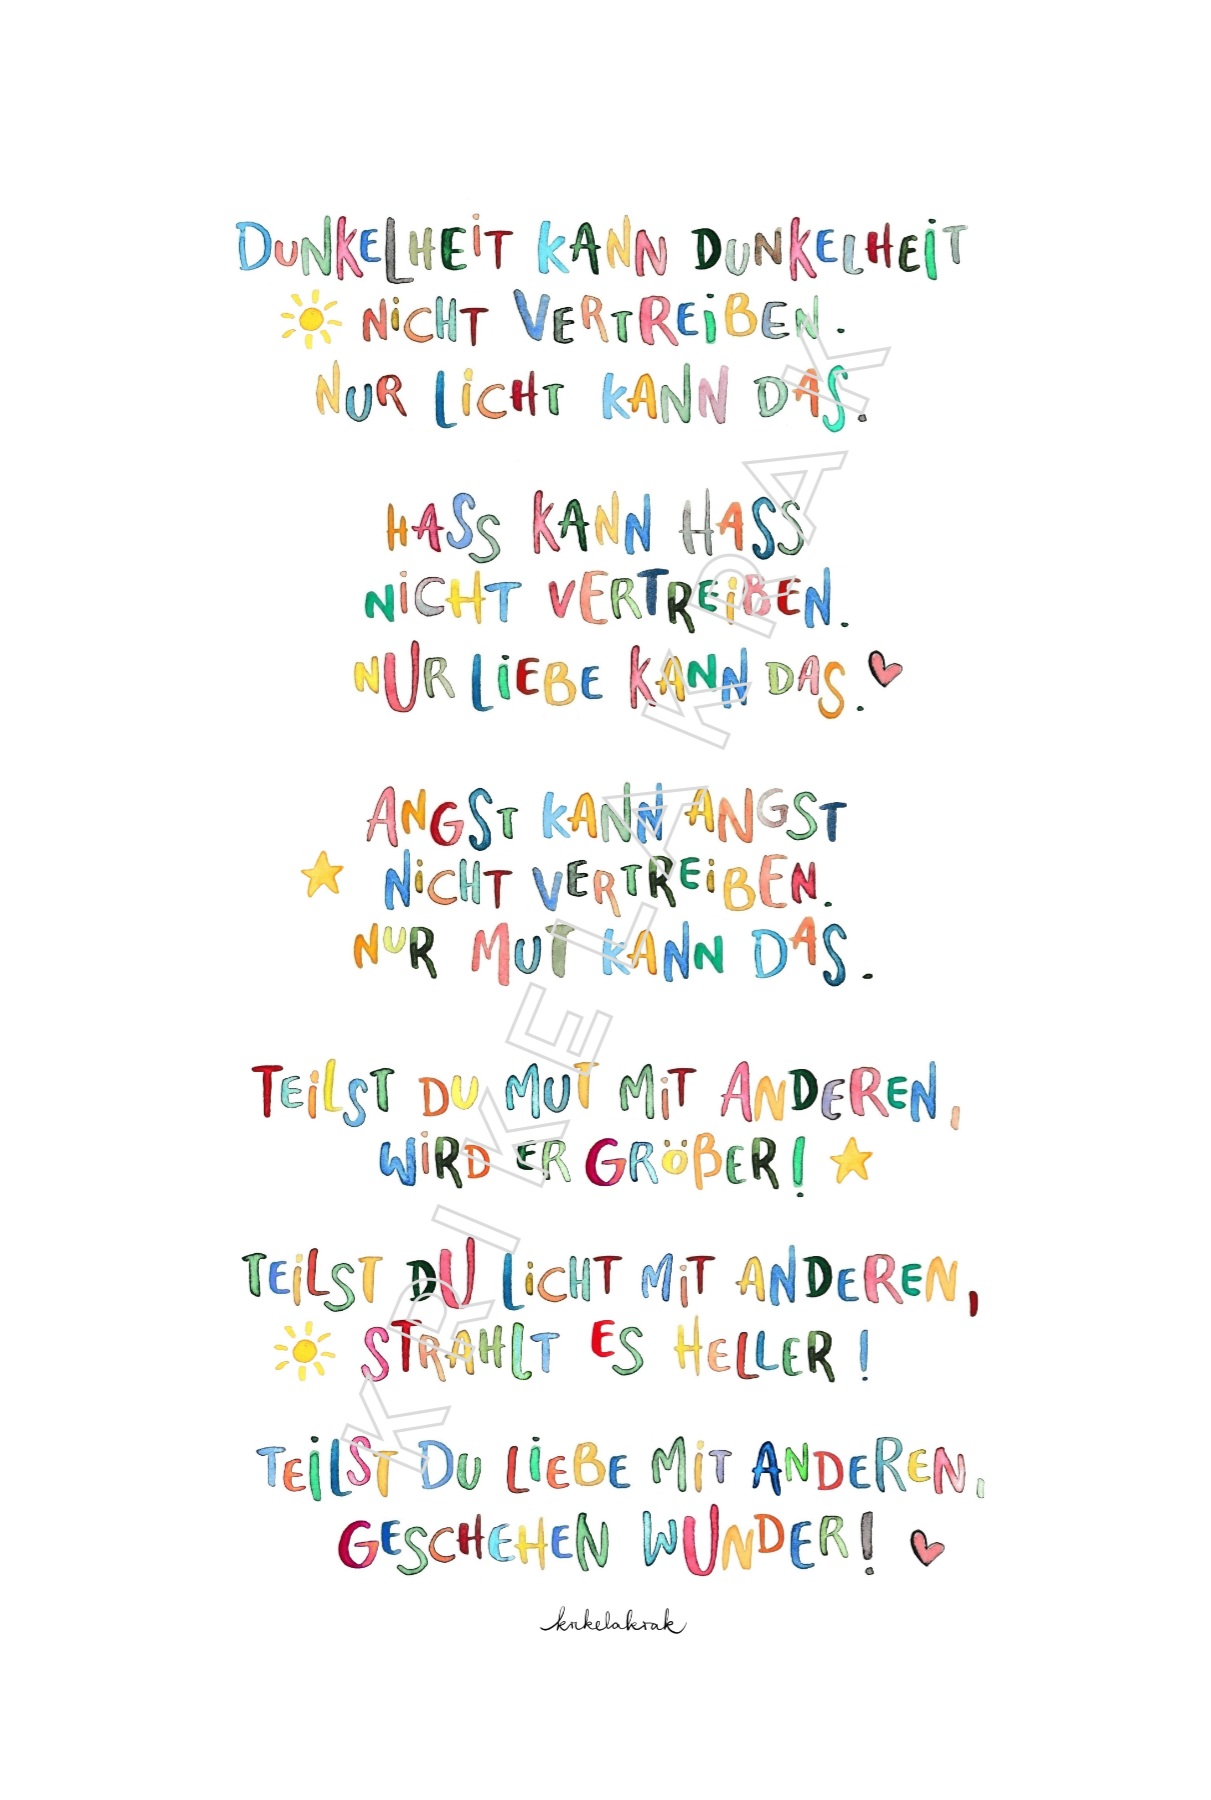 DUNKELHEIT KANN DUNKELHEIT
NICHT VERTREIBEN.
NUR LICHT KANN DAS.
HASS KANN HASS
NICHT VERTREIBEN.
NUR LIEBE KANN DAS.
ANGST KANN ANGST
NICHT VERTREIBEN.
NUR MUT KANN DAS.
TEILST DU MUT MIT ANDEREN,
WIRD ER GRÖßER!
TEILST DU LICHT MIT ANDEREN,
STRAHLT ES HELLER!
TEILST DU LIEBE MIT ANDEREN,
GESCHEHEN WUNDER!
krikelakrak
KRIKELA KRAK